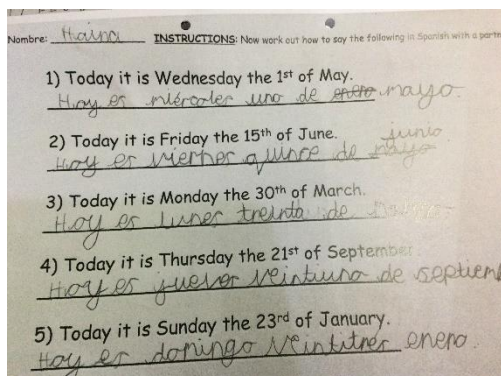 Nombre: Haina INSTRUCTIONS: Now work out how to say the following in Spanish with a partn
1) Today it is Wednesday the 1st of May.
Hoy es miércoles uno de enero mayo.
2) Today it is Friday the 15th of June.
junio
Hoy es viernes quince de mayo
3) Today it is Monday the 30th of March.
Hoy es lunes treinta de
4) Today it is Thursday the 21st of September.
Hoy es jueves veintiuno de septiem
5) Today it is Sunday the 23rd of January.
Hoy es domingo veintitres enero.